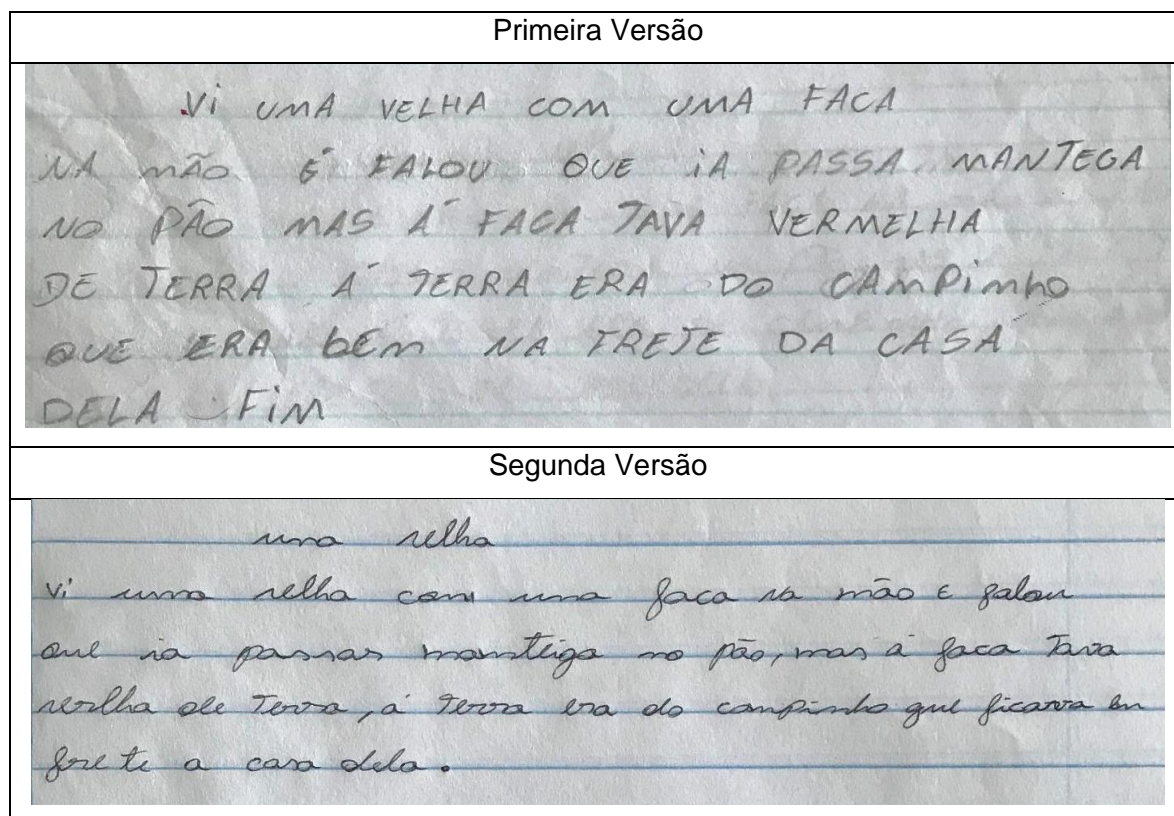 Primeira Versão
Vi UMA VELHA COM UMA FACA
NA MÃO É FALOU QUE iA PASSA MANTEGA
NO PÃO MAS Á FACA TAVA VERMELHA
DE TERRA Á TERRA ERA DO CAMPimhO
QUE ERA bEm NA FRETE DA CASA
DELA FiM
Segunda Versão
uma velha
Vi uma velha com uma faca na mão E falou
que ia passar manteiga no pão, mas á faca Tava
verlha de Terra, á Terra era do campinho que ficava em
frete a casa dela.